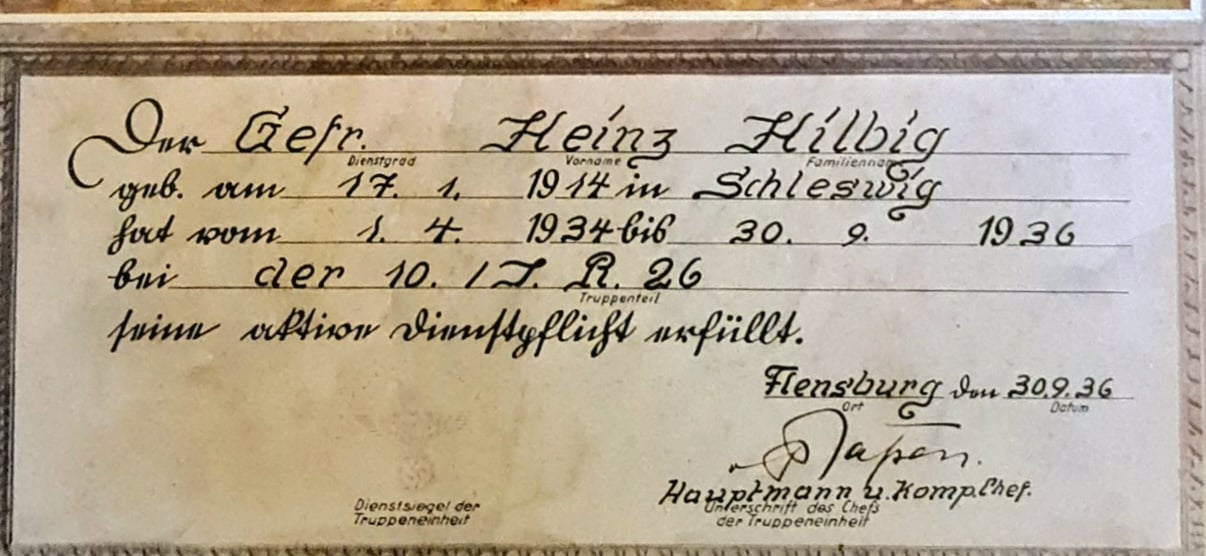 Der Gefr. Heinz Hilbig
Dienstgrad Vorname Familienname
geb. am 17. 1. 1914 in Schleswig
hat vom 1. 4. 1934 bis 30. 9. 1936
bei der 10. / J. R. 26
Truppenteil
seine aktive Dienstpflicht erfüllt.
Flensburg den 30.9.36
Ort Datum
Hauptmann u. Komp. Chef.
Dienstsiegel der Truppeneinheit
Unterschrift des Chefs
der Truppeneinheit